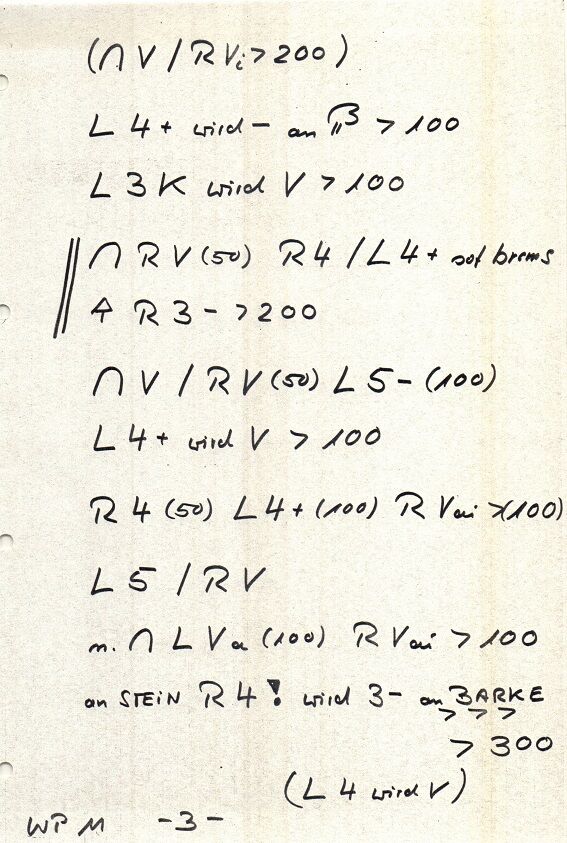 (∩ V / R Vi > 200)
L 4+ wird – an > 100
L 3 K wird V > 100
∩ R V (50) R 4 / L 4+ sof brems
R 3 – > 200
∩ V / R V (50) L 5 – (100)
L 4+ wird V > 100
R 4 (50) L 4+ (100) R Vai > (100)
L 5 / R V
m. ∩ L Va (100) R Vai > 100
an STEIN R 4 ! wird 3 – an BARKE
> > >
> 300
(L 4 wird V)
WP M – 3 –